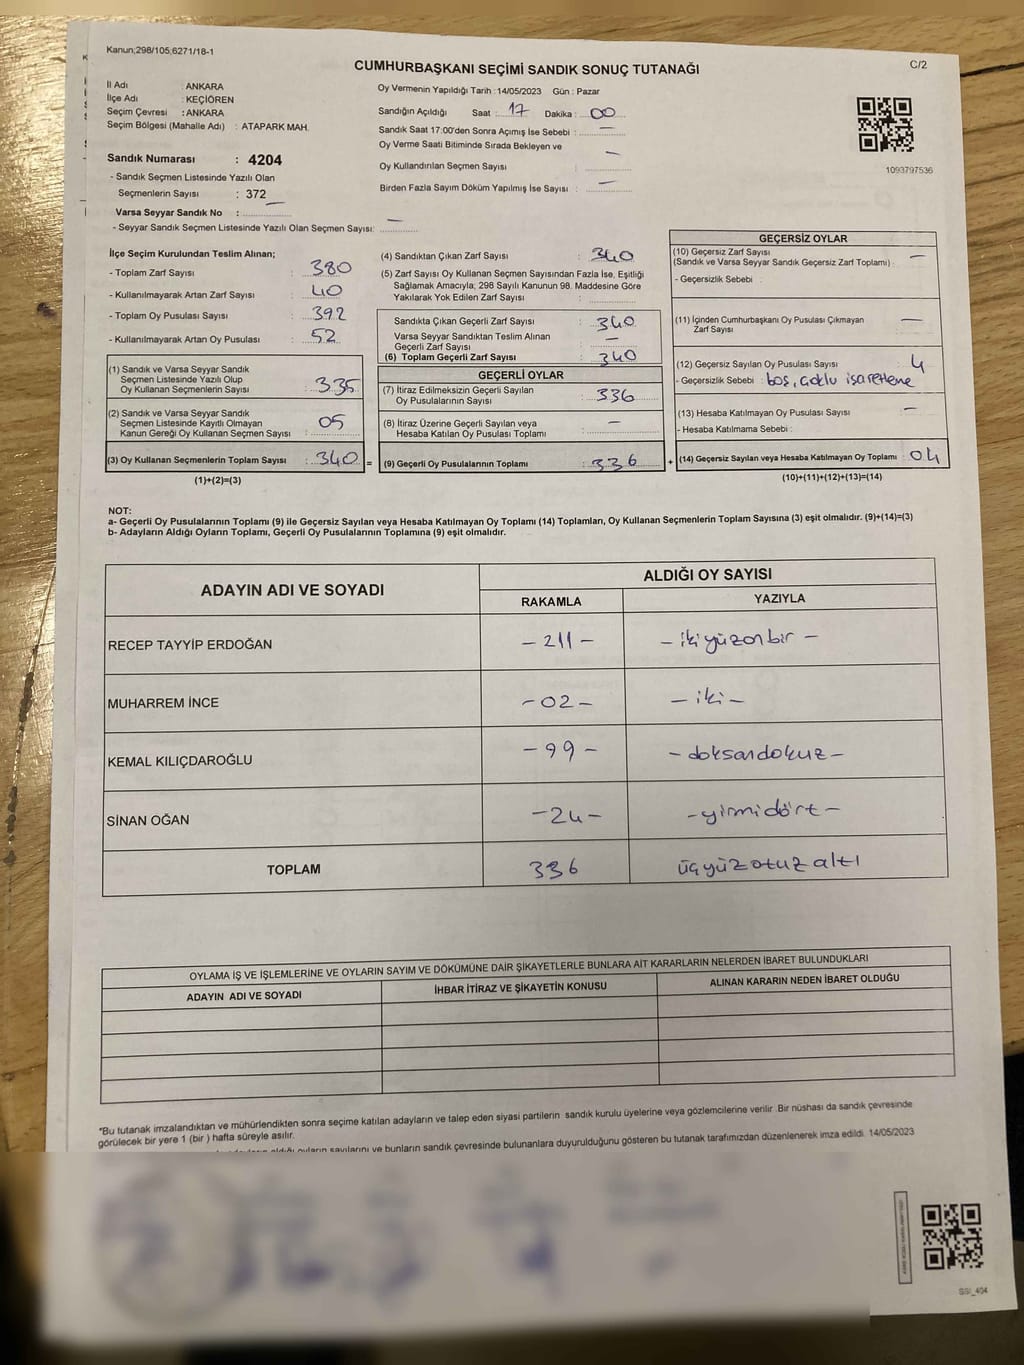 Kanun;298/105;6271/18-1
CUMHURBAŞKANI SEÇİMİ SANDIK SONUÇ TUTANAĞI
C/2
İl Adı : ANKARA
İlçe Adı : KEÇİÖREN
Seçim Çevresi : ANKARA
Seçim Bölgesi (Mahalle Adı) : ATAPARK MAH.
Sandık Numarası : 4204
- Sandık Seçmen Listesinde Yazılı Olan
Seçmenlerin Sayısı : 372
Varsa Seyyar Sandık No : —
- Seyyar Sandık Seçmen Listesinde Yazılı Olan Seçmen Sayısı: —
Oy Vermenin Yapıldığı Tarih :14/05/2023 Gün : Pazar
Sandığın Açıldığı Saat : 17 Dakika : 00
Sandık Saat 17:00'den Sonra Açımış İse Sebebi : —
Oy Verme Saati Bitiminde Sırada Bekleyen ve
Oy Kullandırılan Seçmen Sayısı : —
Birden Fazla Sayım Döküm Yapılmış İse Sayısı : —
1093797536
İlçe Seçim Kurulundan Teslim Alınan;
- Toplam Zarf Sayısı : 380
- Kullanılmayarak Artan Zarf Sayısı : 40
- Toplam Oy Pusulası Sayısı : 392
- Kullanılmayarak Artan Oy Pusulası : 52
(1) Sandık ve Varsa Seyyar Sandık
Seçmen Listesinde Yazılı Olup
Oy Kullanan Seçmenlerin Sayısı : 335
(2) Sandık ve Varsa Seyyar Sandık
Seçmen Listesinde Kayıtlı Olmayan
Kanun Gereği Oy Kullanan Seçmen Sayısı : 05
(3) Oy Kullanan Seçmenlerin Toplam Sayısı : 340 =
(1)+(2)=(3)
(4) Sandıktan Çıkan Zarf Sayısı : 340
(5) Zarf Sayısı Oy Kullanan Seçmen Sayısından Fazla İse, Eşitliği
Sağlamak Amacıyla; 298 Sayılı Kanunun 98. Maddesine Göre
Yakılarak Yok Edilen Zarf Sayısı :
Sandıkta Çıkan Geçerli Zarf Sayısı : 340
Varsa Seyyar Sandıktan Teslim Alınan
Geçerli Zarf Sayısı : —
(6) Toplam Geçerli Zarf Sayısı : 340
GEÇERLİ OYLAR
(7) İtiraz Edilmeksizin Geçerli Sayılan
Oy Pusulalarının Sayısı : 336
(8) İtiraz Üzerine Geçerli Sayılan veya
Hesaba Katılan Oy Pusulası Toplamı : —
(9) Geçerli Oy Pusulalarının Toplamı : 336 +
GEÇERSİZ OYLAR
(10) Geçersiz Zarf Sayısı
(Sandık ve Varsa Seyyar Sandık Geçersiz Zarf Toplamı) : —
- Geçersizlik Sebebi :
(11) İçinden Cumhurbaşkanı Oy Pusulası Çıkmayan
Zarf Sayısı : —
(12) Geçersiz Sayılan Oy Pusulası Sayısı : 4
- Geçersizlik Sebebi : boş, çoklu işaretleme
(13) Hesaba Katılmayan Oy Pusulası Sayısı : —
- Hesaba Katılmama Sebebi :
(14) Geçersiz Sayılan veya Hesaba Katılmayan Oy Toplamı : 04
(10)+(11)+(12)+(13)=(14)
NOT:
a- Geçerli Oy Pusulalarının Toplamı (9) ile Geçersiz Sayılan veya Hesaba Katılmayan Oy Toplamı (14) Toplamları, Oy Kullanan Seçmenlerin Toplam Sayısına (3) eşit olmalıdır. (9)+(14)=(3)
b- Adayların Aldığı Oyların Toplamı, Geçerli Oy Pusulalarının Toplamına (9) eşit olmalıdır.
ADAYIN ADI VE SOYADI
ALDIĞI OY SAYISI
RAKAMLA YAZIYLA
RECEP TAYYİP ERDOĞAN - 211 - - ikiyüzonbir -
MUHARREM İNCE - 02 - - iki -
KEMAL KILIÇDAROĞLU - 99 - - doksandokuz -
SİNAN OĞAN - 24 - - yirmidört -
TOPLAM 336 üçyüzotuzaltı
OYLAMA İŞ VE İŞLEMLERİNE VE OYLARIN SAYIM VE DÖKÜMÜNE DAİR ŞİKAYETLERLE BUNLARA AİT KARARLARIN NELERDEN İBARET BULUNDUKLARI
ADAYIN ADI VE SOYADI İHBAR İTİRAZ VE ŞİKAYETİN KONUSU ALINAN KARARIN NEDEN İBARET OLDUĞU
*Bu tutanak imzalandıktan ve mühürlendikten sonra seçime katılan adayların ve talep eden siyasi partilerin sandık kurulu üyelerine veya gözlemcilerine verilir .Bir nüshası da sandık çevresinde
görülecek bir yere 1 (bir ) hafta süreyle asılır.
aldığı oyların sayılarını ve bunların sandık çevresinde bulunanlara duyurulduğunu gösteren bu tutanak tarafımızdan düzenlenerek imza edildi. 14/05/2023
SSI_404